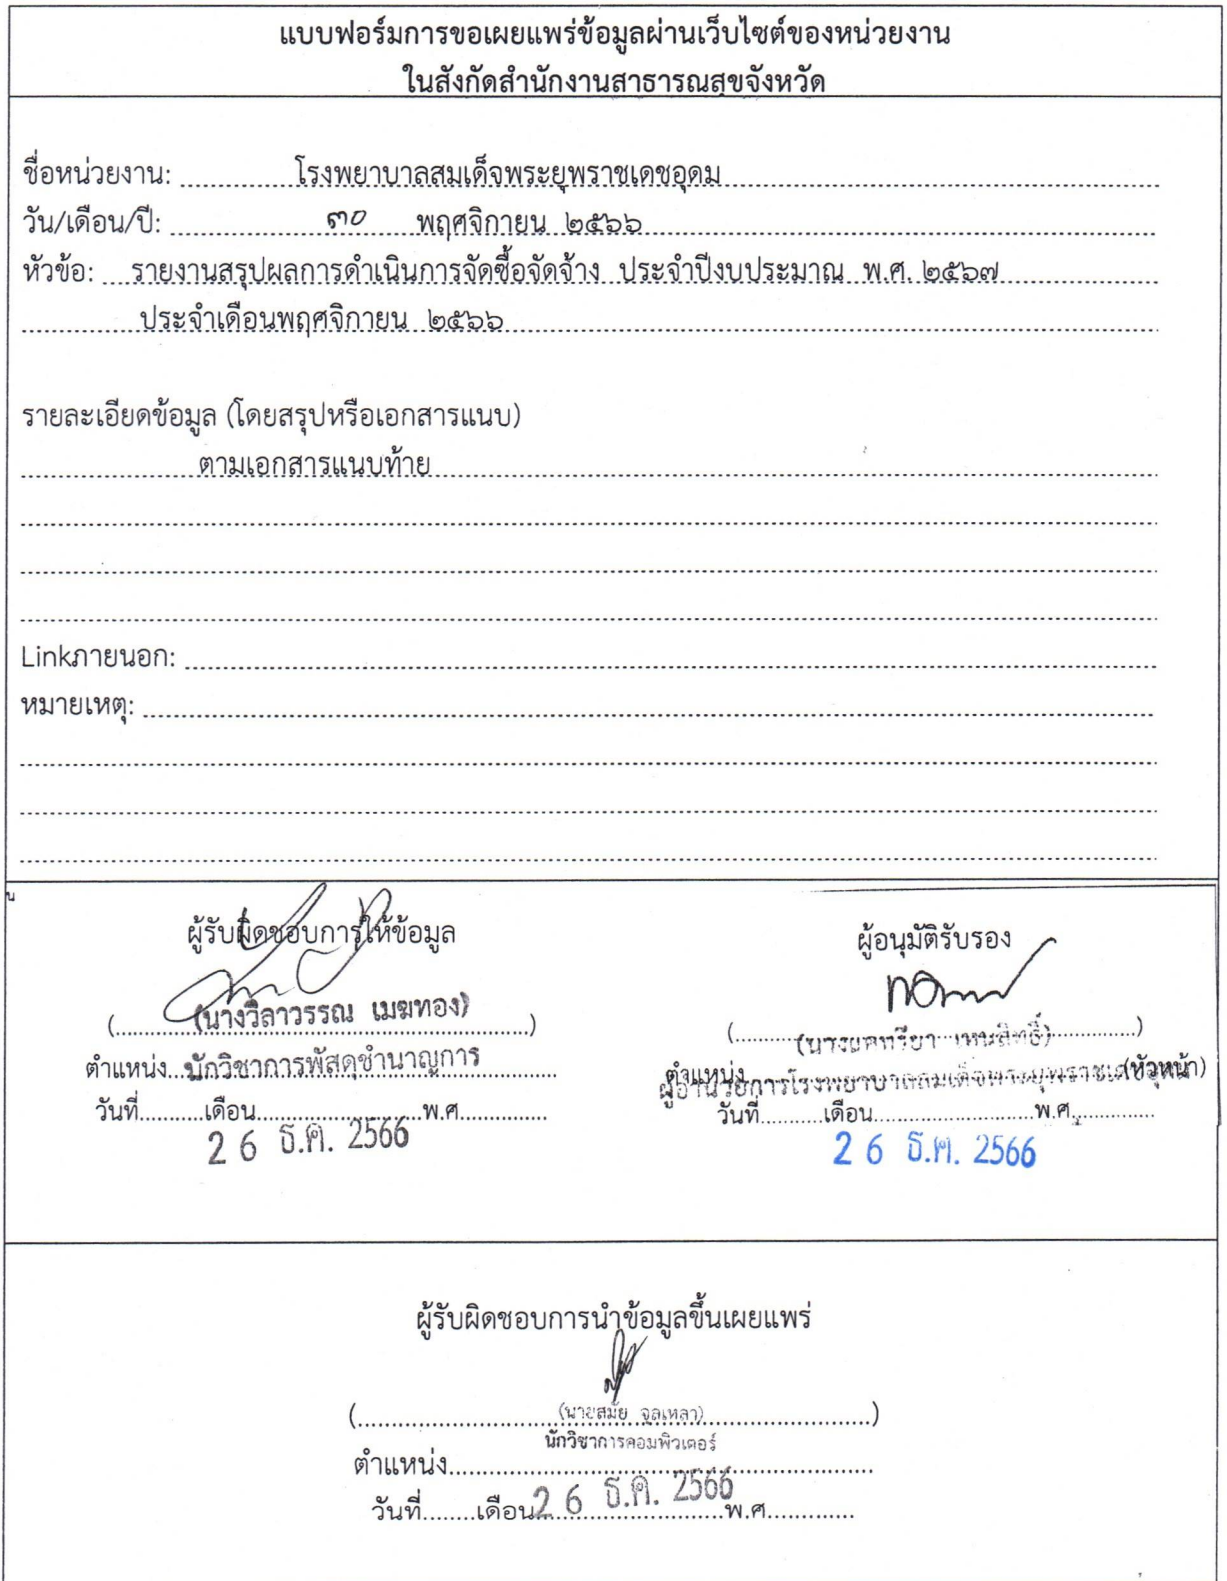 แบบฟอร์มการขอเผยแพร่ข้อมูลผ่านเว็บไซต์ของหน่วยงาน
ในสังกัดสำนักงานสาธารณสุขจังหวัด
ชื่อหน่วยงาน: โรงพยาบาลสมเด็จพระยุพราชเดชอุดม
วัน/เดือน/ปี: ๓๐ พฤศจิกายน ๒๕๖๖
หัวข้อ: รายงานสรุปผลการดำเนินการจัดซื้อจัดจ้าง ประจำปีงบประมาณ พ.ศ. ๒๕๖๗
ประจำเดือนพฤศจิกายน ๒๕๖๖
รายละเอียดข้อมูล (โดยสรุปหรือเอกสารแนบ)
ตามเอกสารแนบท้าย
Linkภายนอก:
หมายเหตุ:
น
ผู้รับผิดชอบการให้ข้อมูล
(นางวิลาวรรณ เมฆทอง)
ตำแหน่ง...นักวิชาการพัสดุชำนาญการ
วันที่...........เดือน............................พ.ศ...............
2 6 ธ.ค. 2566
ผู้อนุมัติรับรอง
ตำแหน่ง (หัวหน้า)
ผู้อำนวยการโรงพยาบาลสมเด็จพระยุพราชเดชอุดม
วันที่...........เดือน............................พ.ศ...............
2 6 ธ.ค. 2566
ผู้รับผิดชอบการนำข้อมูลขึ้นเผยแพร่
(นายสมัย จูลเหลา)
นักวิชาการคอมพิวเตอร์
ตำแหน่ง
วันที่........เดือน............................พ.ศ.............
2 6 ธ.ค. 2566